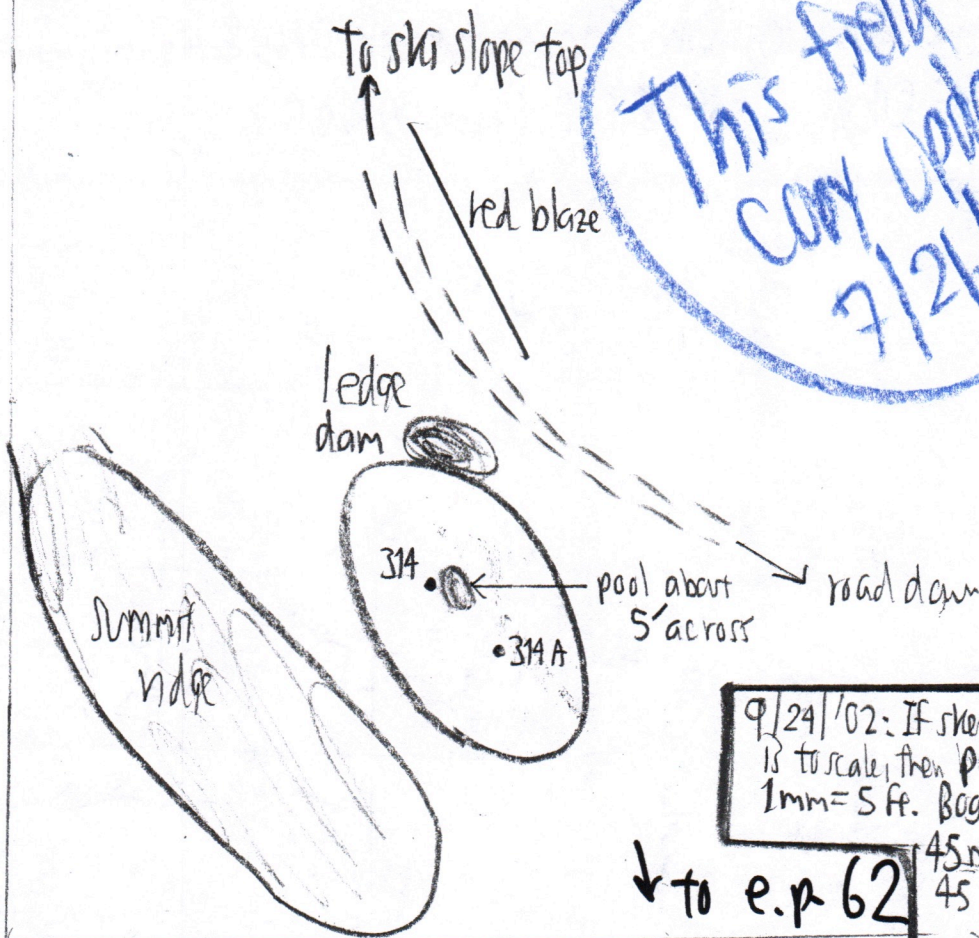 to ski slope top
This field
copy upda
7/2
red blaze
ledge
dam
314
pool about
5' across
road down
314A
summit
ridge
9/24/'02: If ske
is to scale, then p
1mm=5 ft. Bog
45
45
↓ to e.p. 62